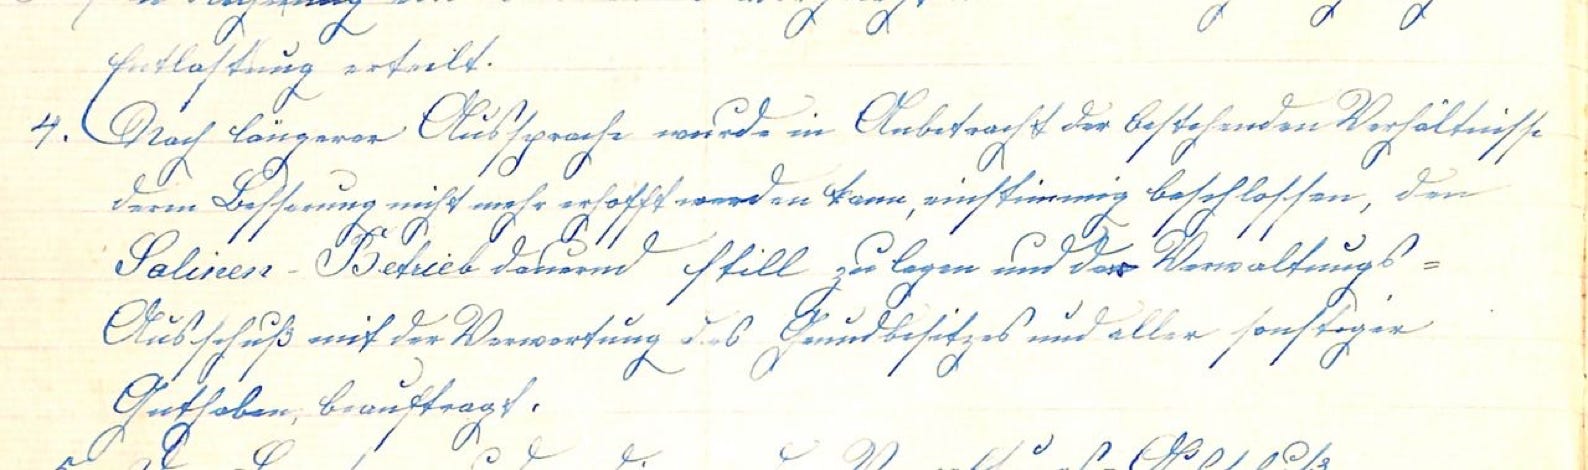 Entlastung erteilt.
4. Nach längerer Aussprache wurde in Anbetracht der bestehenden Verhältnisse
deren Besserung nicht mehr erhofft werden kann, einstimmig beschlossen, den
Salinen-Betrieb dauernd still zu legen und der Verwaltungs=
Ausschuß mit der Verwertung des Grundbesitzes und aller sonstiger
Guthaben, beauftragt.